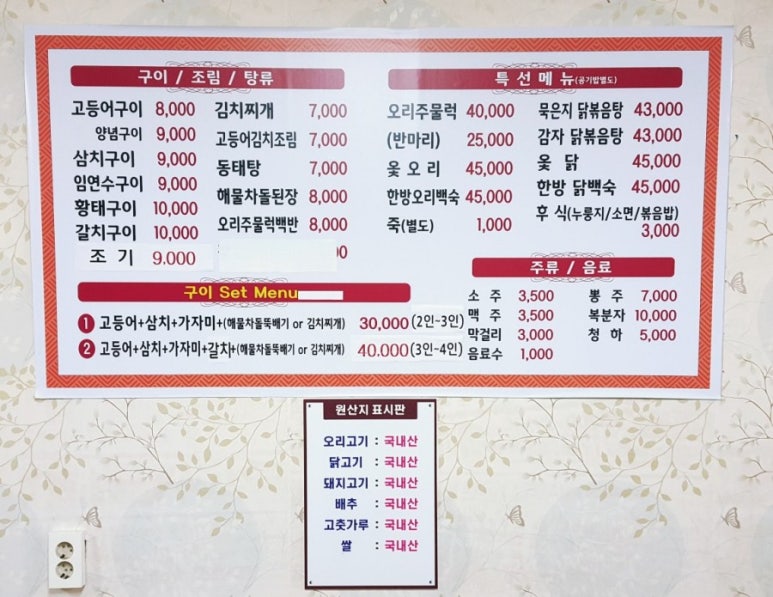 구이 / 조림 / 탕류
고등어구이 8,000
양념구이 9,000
삼치구이 9,000
임연수구이 9,000
황태구이 10,000
갈치구이 10,000
조 기 9.000
김치찌개 7,000
고등어김치조림 7,000
동태탕 7,000
해물차돌된장 8,000
오리주물럭백반 8,000
구이 Set Menu
1 고등어+삼치+가자미+(해물차돌뚝배기 or 김치찌개) 30,000 (2인-3인)
2 고등어+삼치+가자미+갈치+(해물차돌뚝배기 or 김치찌개) 40.000 (3인-4인)
특 선 메 뉴 (공기밥별도)
오리주물럭 40,000
(반마리) 25,000
옻 오 리 45,000
한방오리백숙 45,000
죽(별도) 1,000
묵은지 닭볶음탕 43,000
감자 닭볶음탕 43,000
옻 닭 45,000
한방 닭백숙 45,000
후 식(누룽지/소면/볶음밥)
3,000
주류 / 음료
소 주 3,500
맥 주 3,500
막걸리 3,000
음료수 1,000
뽕 주 7,000
복분자 10,000
청 하 5,000
원산지 표시판
오리고기 : 국내산
닭고기 : 국내산
돼지고기 : 국내산
배추 : 국내산
고춧가루 : 국내산
쌀 : 국내산